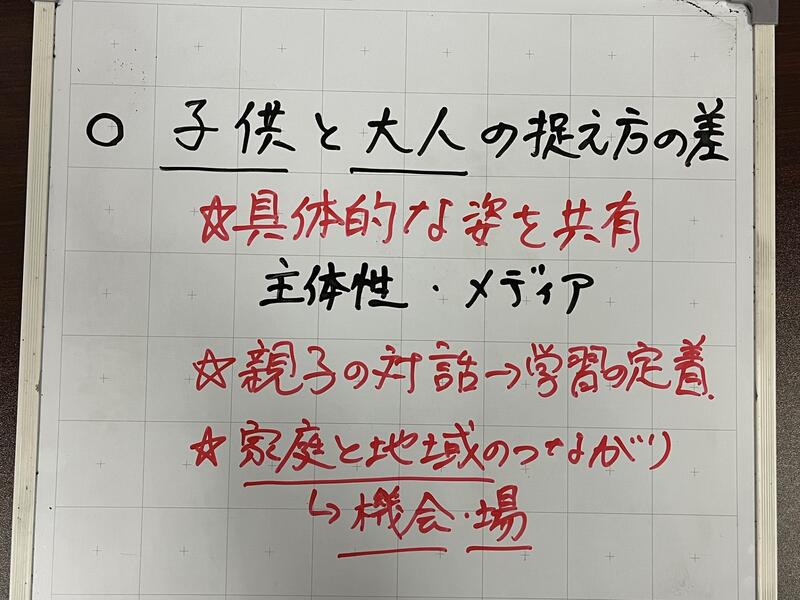 ○ 子供と大人の捉え方の差
☆具体的な姿を共有
主体性・メディア
☆親子の対話→学習の定着.
☆家庭と地域のつながり
↳機会・場